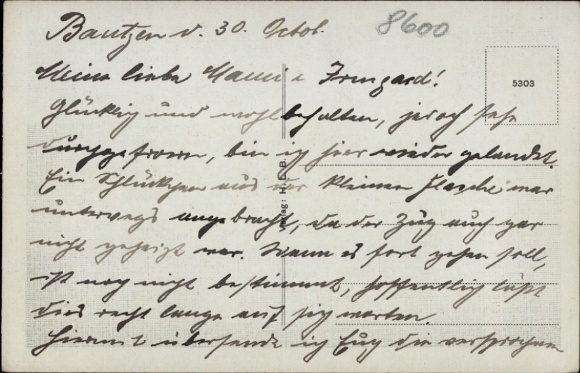 Bautzen d. 30. Octob.
8600
Meine liebe Mami u Irmgard!
5303
Glücklig und wohlbehalten, jedoch sehr
durchgefroren, bin ich hier wieder gelandet.
Ein Schlückchen aus der kleinen Flasche war
unterwegs angebracht, da der Zug auch gar
nicht geheizt war. Wann es fort gehen soll,
ist noch nicht bestimmt, hoffentlich läßt
dies recht lange auf sich warten.
Hiermit übersende ich Euch die versprochenen